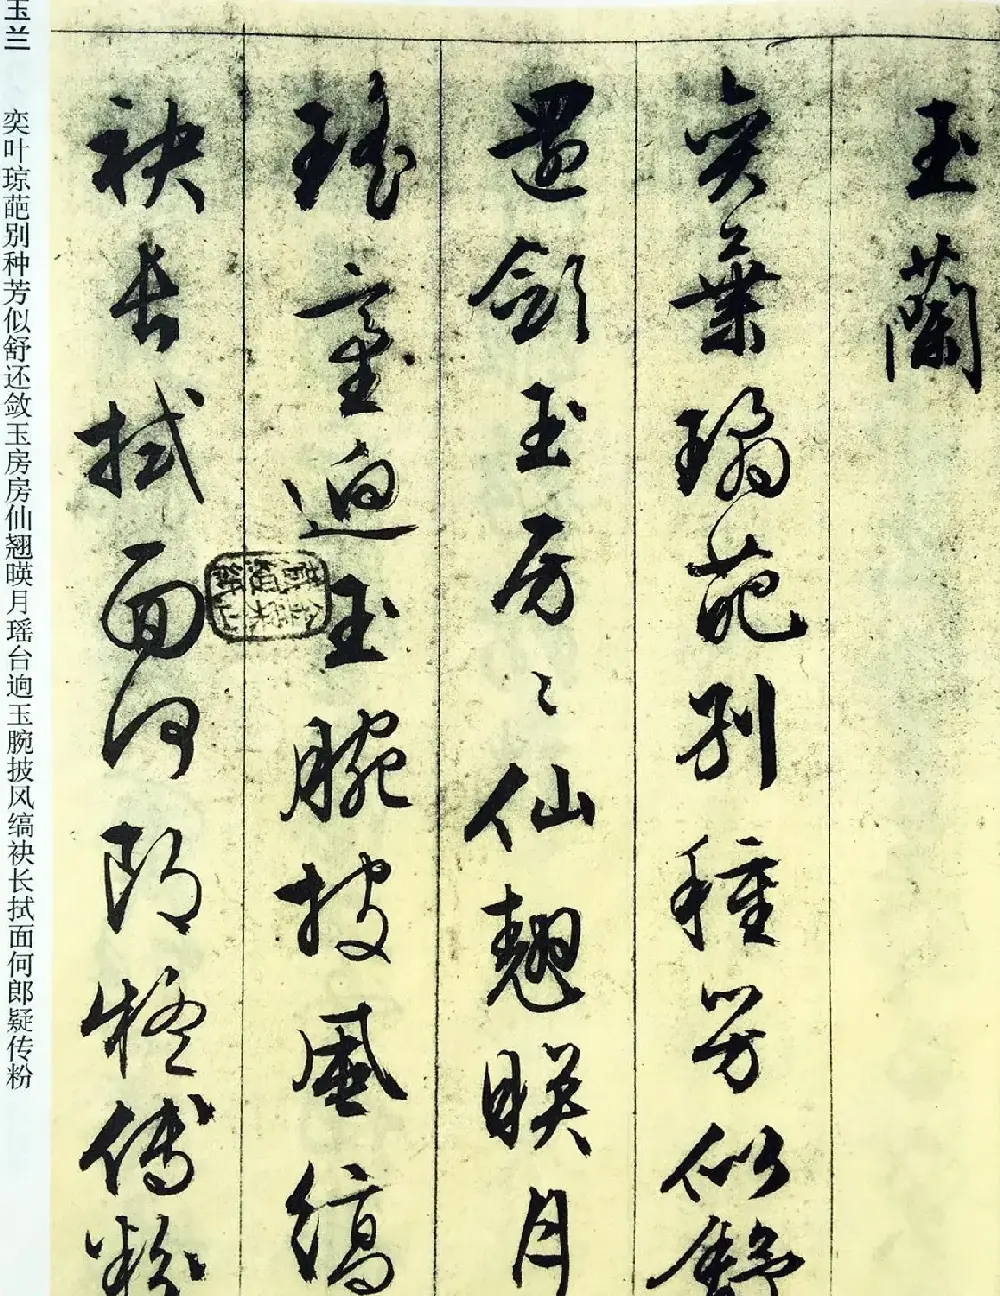 玉蘭
奕葉瓊葩别種芳似舒
還斂玉房房仙翹暎月
瑤臺迥玉腕披風縞
袂長拭面何郎疑傅粉
玉兰 奕叶琼葩别种芳似舒还敛玉房房仙翘暎月瑶台逈玉腕披风缟袂长拭面何郎疑传粉